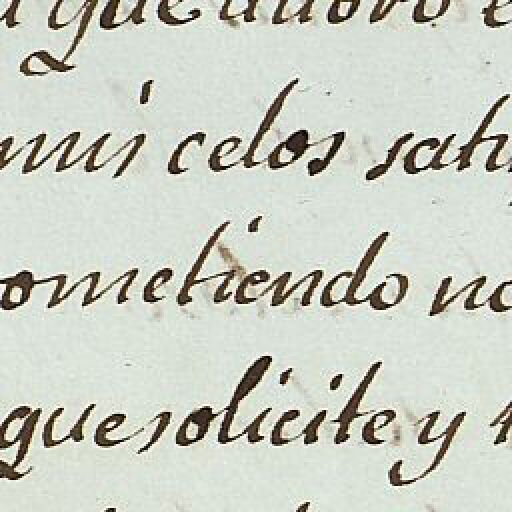 que adoro
mis celos satis
ometiendo no
que solicite y